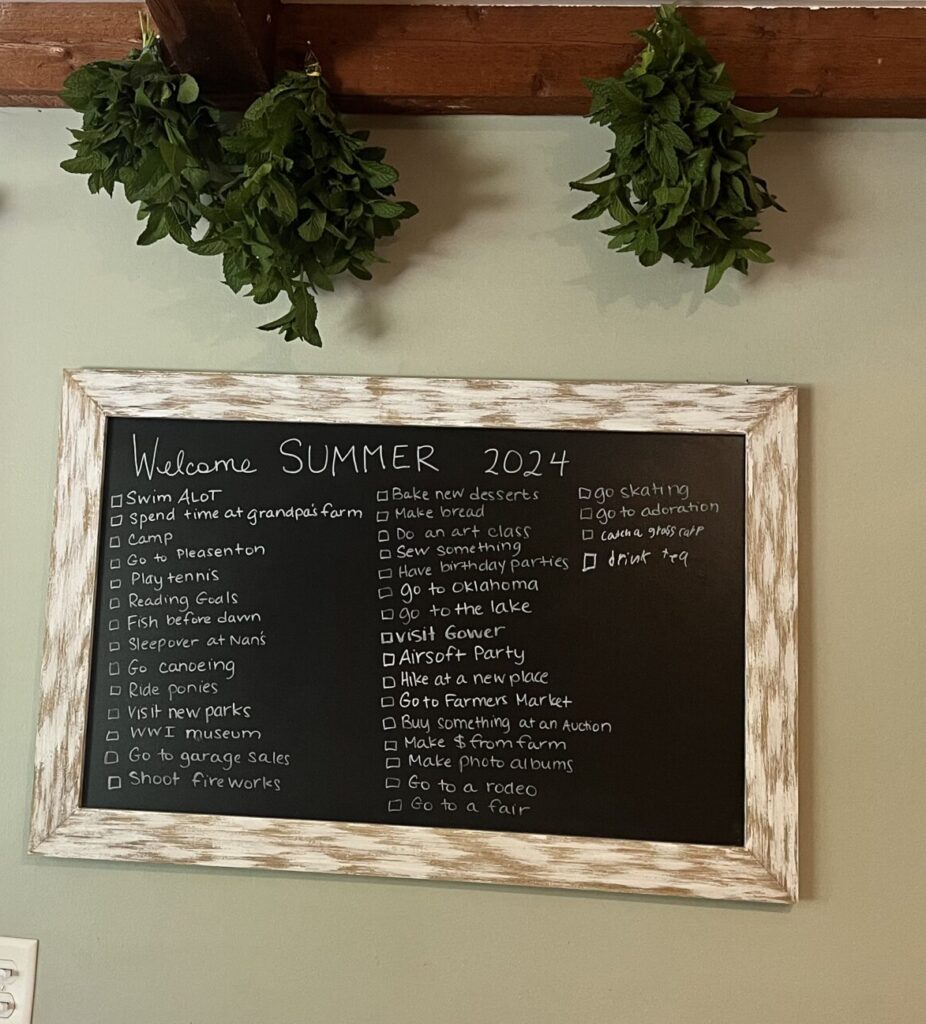 Welcome SUMMER 2024
Swim ALOT
Spend time at grandpa's farm
Camp
Go to Pleasenton
Play tennis
Reading Goals
Fish before dawn
Sleepover at Nan's
Go canoeing
Ride ponies
Visit new parks
WWI museum
Go to garage sales
Shoot fireworks
Bake new desserts
Make bread
Do an art class
Sew something
Have birthday parties
go to Oklahoma
go to the lake
visit Gower
Airsoft Party
Hike at a new place
Go to Farmers Market
Buy something at an Auction
Make $ from farm
Make photo albums
Go to a rodeo
Go to a fair
go skating
go to adoration
catch a grass carp
drink tea